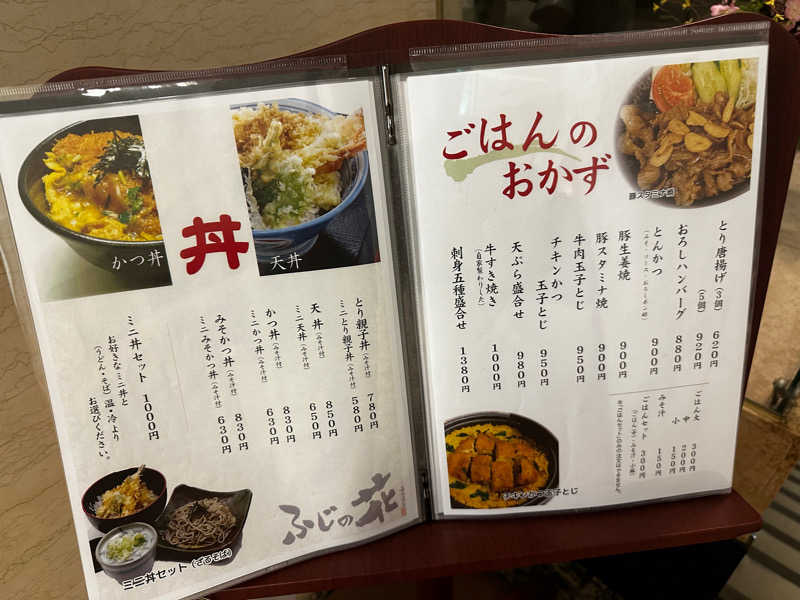 かつ丼
天丼
丼
とり親子丼(みそ汁付) 780円
ミニとり親子丼(みそ汁付) 580円
天丼(みそ汁付) 850円
ミニ天丼(みそ汁付) 650円
かつ丼(みそ汁付) 830円
ミニかつ丼(みそ汁付) 630円
みそかつ丼(みそ汁付) 830円
ミニみそかつ丼(みそ汁付) 630円
ミニ丼セット 1000円
お好きなミニ丼と
(うどん・そば)温・冷より
お選びください。
ミニ丼セット(ざるそば)
ふじの花
ごはんの
おかず
豚スタミナ焼
とり唐揚げ(3個) 620円
(5個) 920円
おろしハンバーグ 880円
とんかつ 900円
(みそ・ソース・おろしポン酢)
豚生姜焼 900円
豚スタミナ焼 900円
牛肉玉子とじ 950円
チキンかつ玉子とじ 950円
天ぷら盛合せ 980円
牛すき焼き 1000円
(自家製わりした)
刺身五種盛合せ 1380円
ごはん大 300円
中 200円
小 150円
みそ汁 150円
ごはんセット 300円
チキンかつ玉子とじ